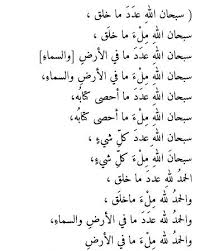 ( سبحان اللهِ عدَدَ ما خلق ،
سبحان اللهِ مِلْءَ ما خلَق ،
سبحان اللهِ عدَدَ ما في الأرضِ [والسماءِ]
سبحان اللهِ مِلْءَ ما في الأرضِ والسماءِ،
سبحان اللهِ عدَدَ ما أحصى كتابُه،
سبحان اللهِ مِلْءَ ما أحصى كتابُه،
سبحان اللهِ عددَ كلِّ شيءٍ ،
سبحانَ اللهِ مِلْءَ كلِّ شيءٍ،
الحمدُ للهِ عددَ ما خلق ،
والحمدُ لله مِلْءَ ماخلَق ،
والحمدُ لله عدَدَ ما في الأرضِ والسماءِ،
والحمدُ لله مِلْءَ ما في الأرضِ